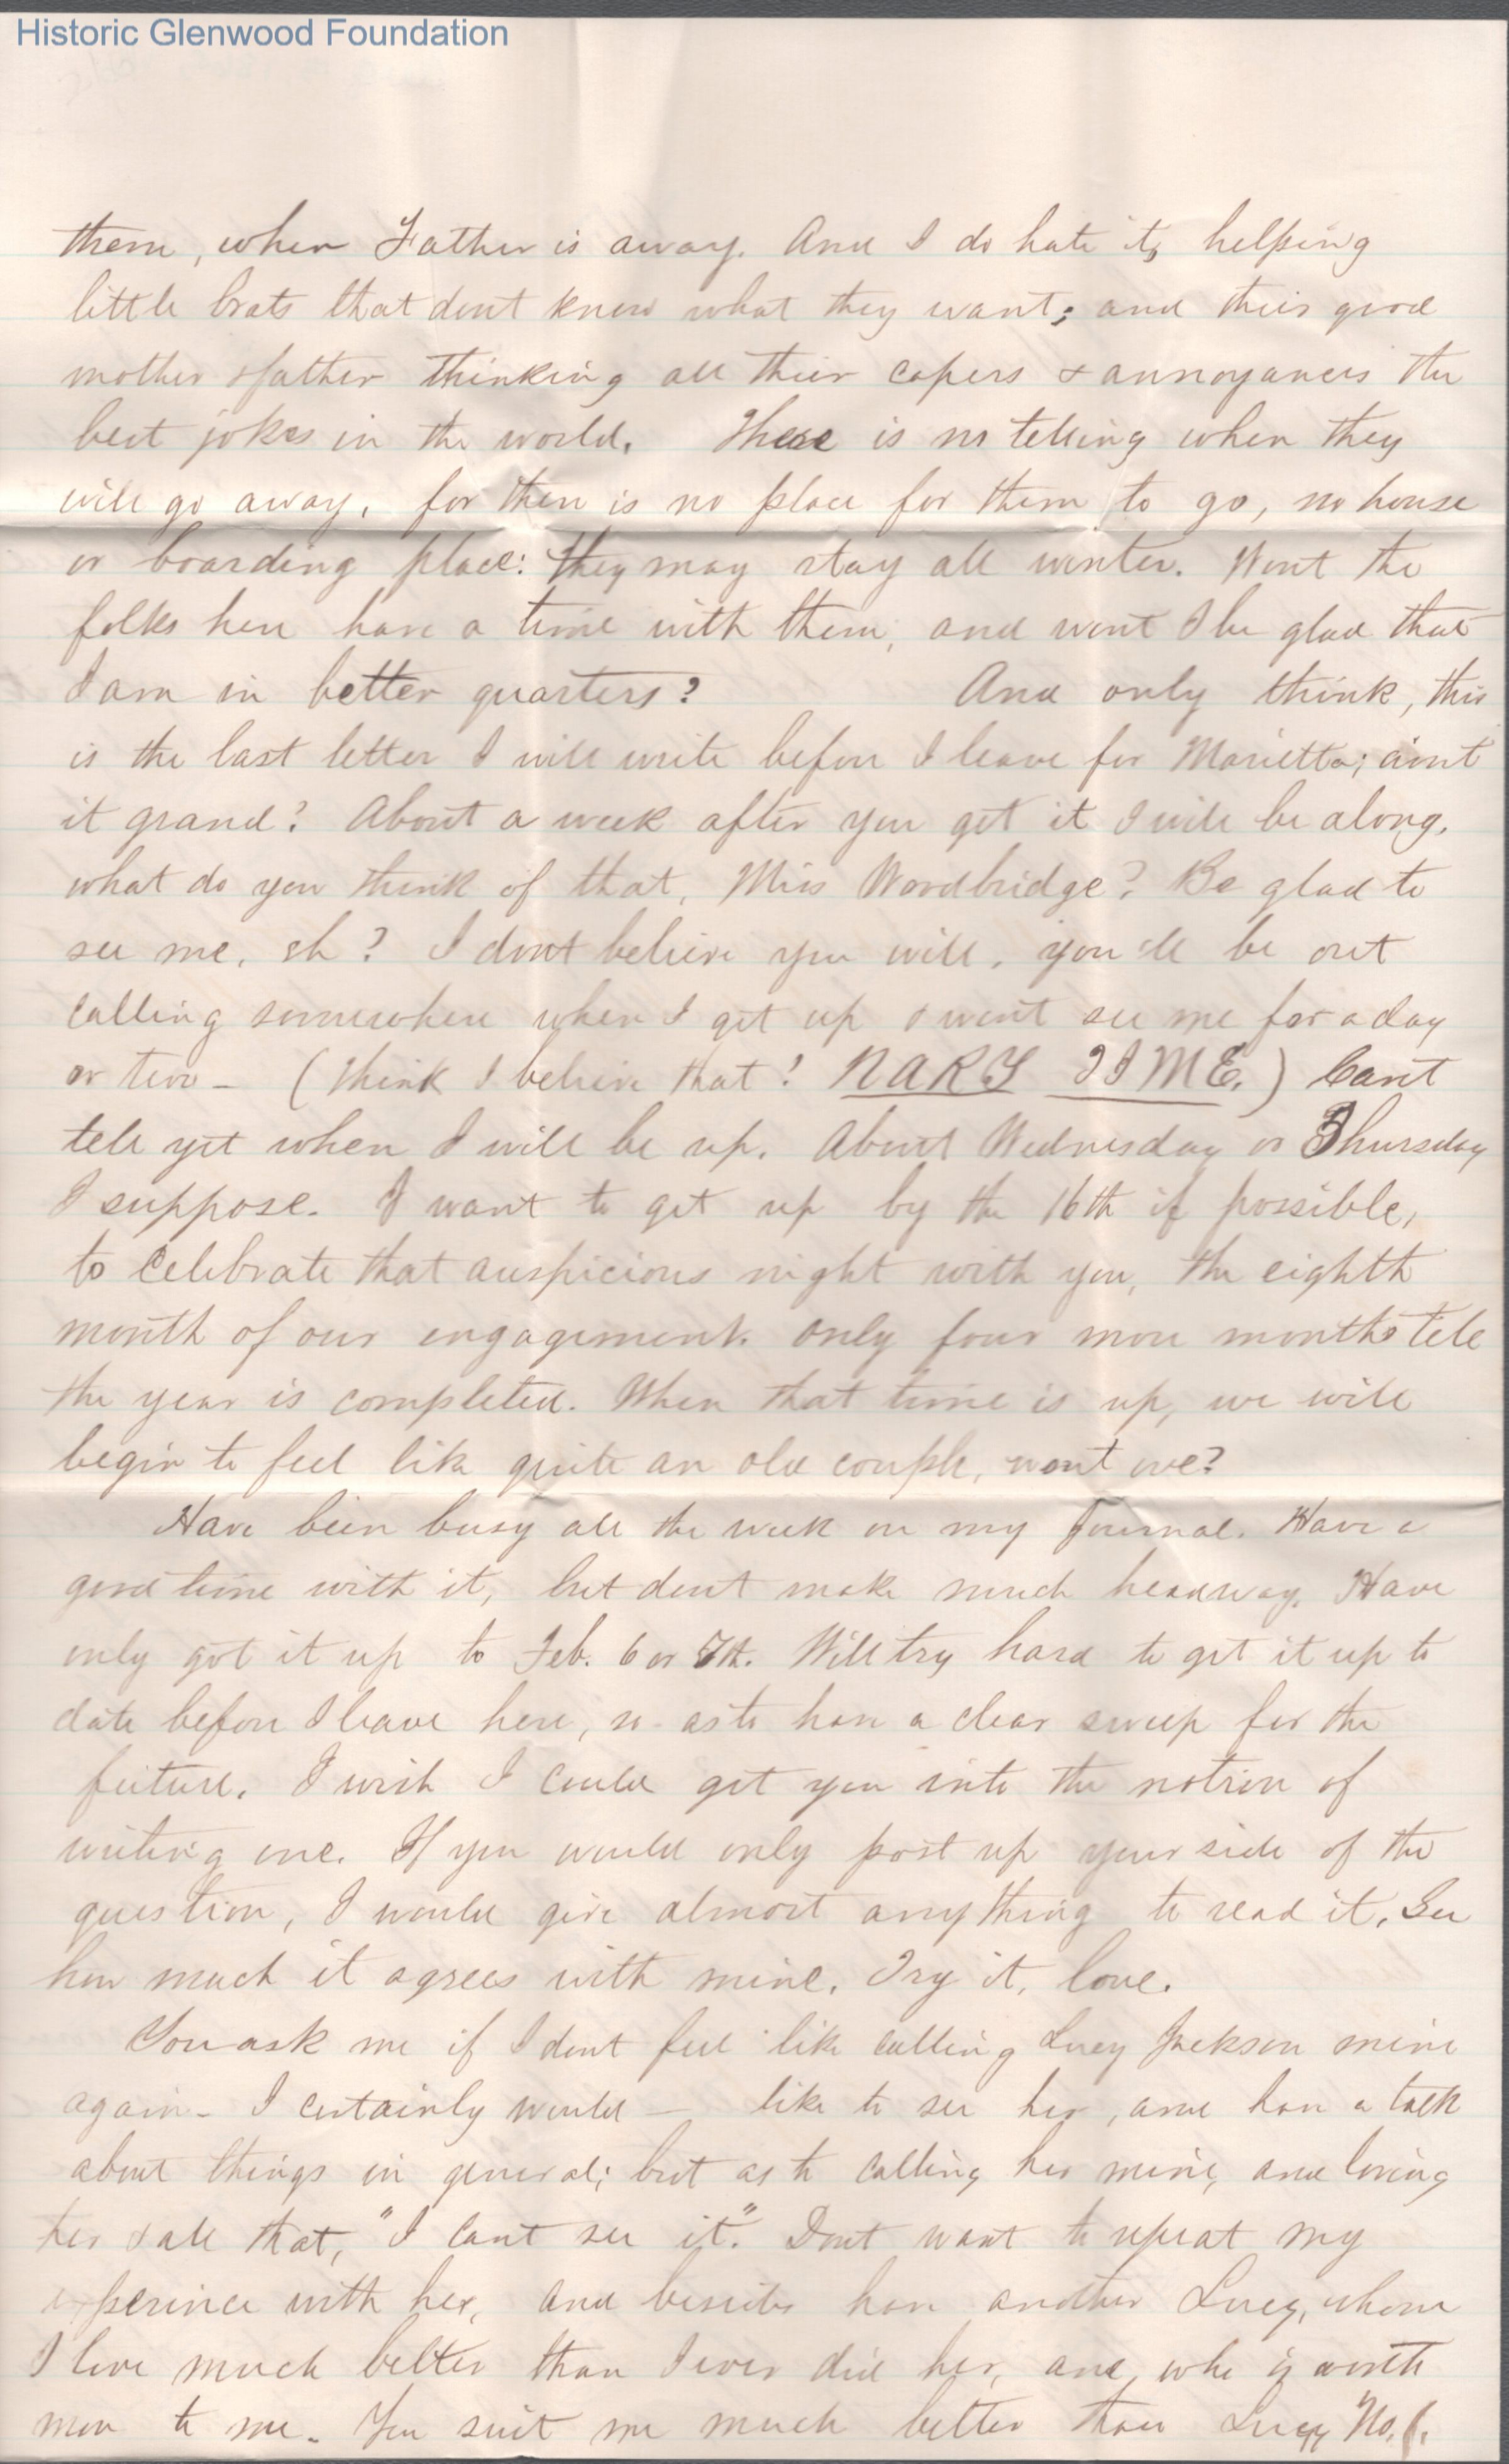 Historic Glenwood Foundation
them, when Father is away. And I do hate it, helping
little brats that dont know what they want; and their good
mother & father thinking all their capers & annoyances the
best jokes in the world. There is no telling when they
will go away, for there is no place for them to go, no house
or boarding place: they may stay all winter. Wont the
folks here have a time with them, and wont I be glad that
I am in better quarters? And only think, this
is the last letter I will write before I leave for Marietta; aint
it grand? About a week after you get it I will be along.
what do you think of that, Miss Woodbridge? Be glad to
see me, eh? I dont believe you will. you'll be out
calling somewhere when I get up & wont see me for a day
or two – (think I believe that! NARY TIME.) Cant
tell yet when I will be up. About Wednesday or Thursday
I suppose. I want to get up by the 16th if possible,
to celebrate that auspicious night with you, the eighth
month of our engagement. only four more months till
the year is completed. When that time is up, we will
begin to feel like quite an old couple, wont we?
Have been busy all the week on my Journal. Have a
good time with it, but dont make much headway. Have
only got it up to Feb. 6 or 7th. Will try hard to get it up to
date before I leave here, so as to have a clear sweep for the
future. I wish I could get you into the notion of
writing one. If you would only post up your side of the
question, I would give almost anything to read it. See
how much it agrees with mine. Try it, love.
You ask me if I dont feel like calling Lucy Jackson mine
again – I certainly would — like to see her, and have a talk
about things in general; but as to calling her mine, and loving
her & all that, "I cant see it". Dont want to repeat my
experince with her, and besides have another Lucy, whom
I love much better than I ever did her, and who is worth
more to me. You suit me much better than Lucy No. 1.